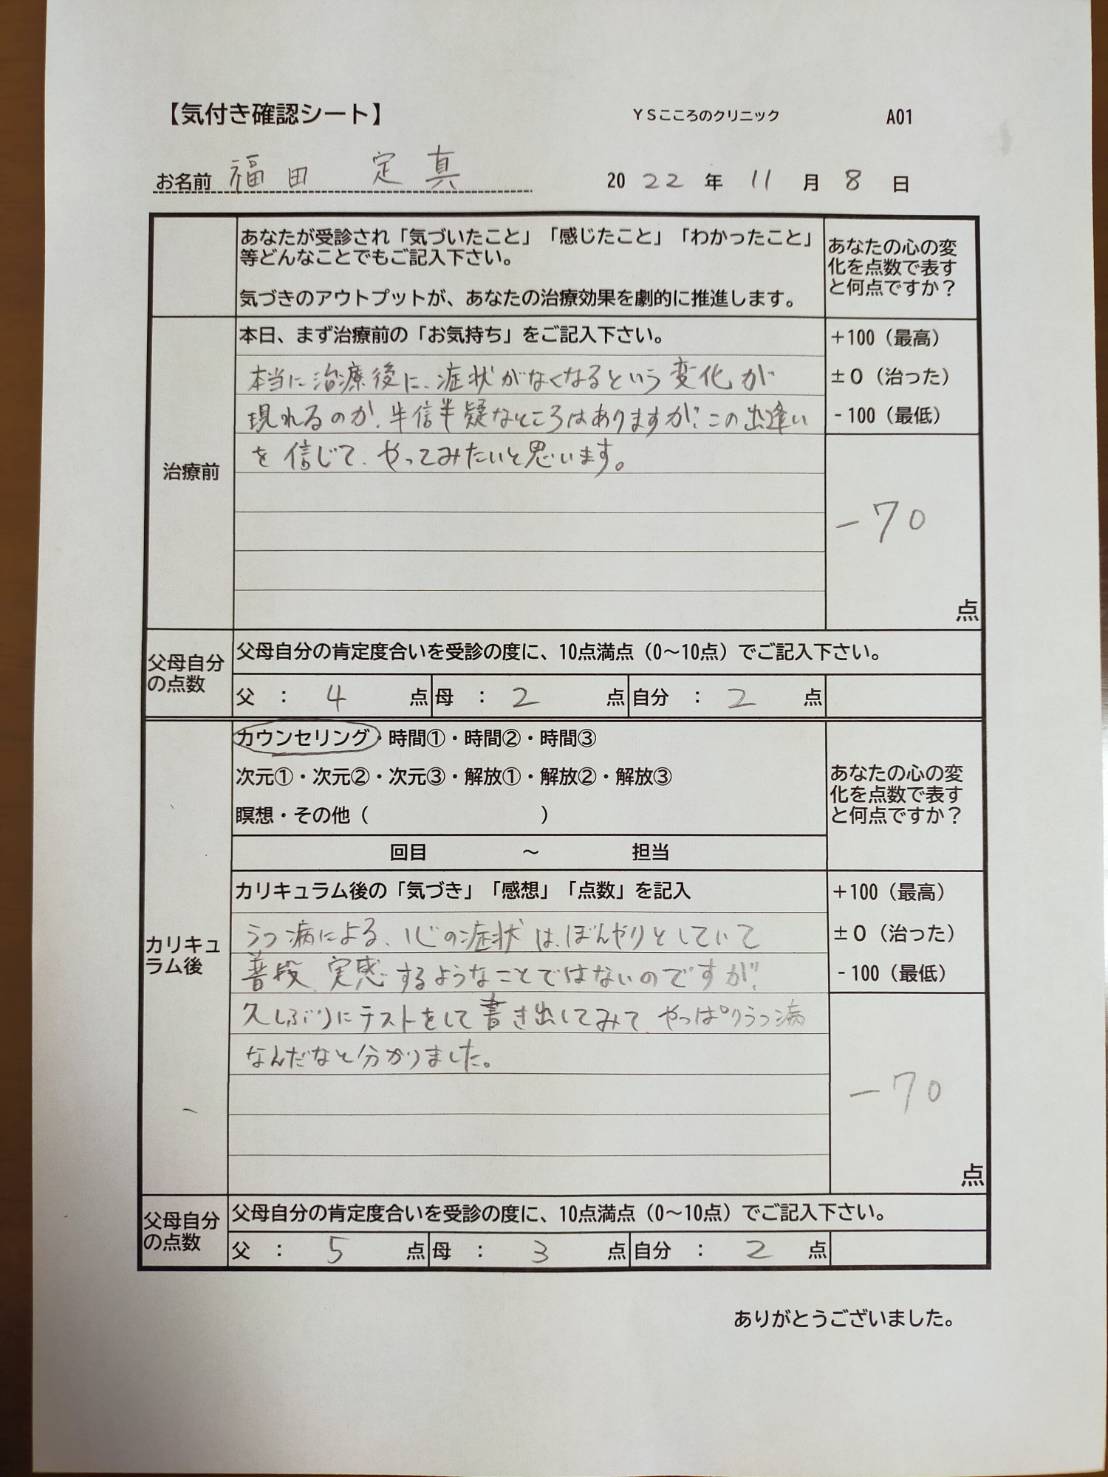 【気付き確認シート】 YSこころのクリニック A01
お名前 福田 定真 2022年 11月 8日
あなたが受診され「気づいたこと」「感じたこと」「わかったこと」
等どんなことでもご記入下さい。
気づきのアウトプットが、あなたの治療効果を劇的に推進します。
あなたの心の変
化を点数で表す
と何点ですか？
治療前
本日、まず治療前の「お気持ち」をご記入下さい。
本当に治療後に、症状がなくなるという変化が
現れるのか、半信半疑なところはありますが、この出逢い
を信じて、やってみたいと思います。
+100（最高）
±0（治った）
-100（最低）
-70
点
父母自分
の点数
父母自分の肯定度合いを受診の度に、10点満点（0～10点）でご記入下さい。
父 ： 4 点 母 ： 2 点 自分 ： 2 点
カリキュ
ラム後
カウンセリング・時間①・時間②・時間③
次元①・次元②・次元③・解放①・解放②・解放③
瞑想・その他（ ）
回目 ～ 担当
あなたの心の変
化を点数で表す
と何点ですか？
カリキュラム後の「気づき」「感想」「点数」を記入
うつ病による、心の症状は、ぼんやりとしていて
普段、実感するようなことではないのですが、
久しぶりにテストをして書き出してみて、やっぱりうつ病
なんだなと分かりました。
+100（最高）
±0（治った）
-100（最低）
-70
点
父母自分
の点数
父母自分の肯定度合いを受診の度に、10点満点（0～10点）でご記入下さい。
父 ： 5 点 母 ： 3 点 自分 ： 2 点
ありがとうございました。